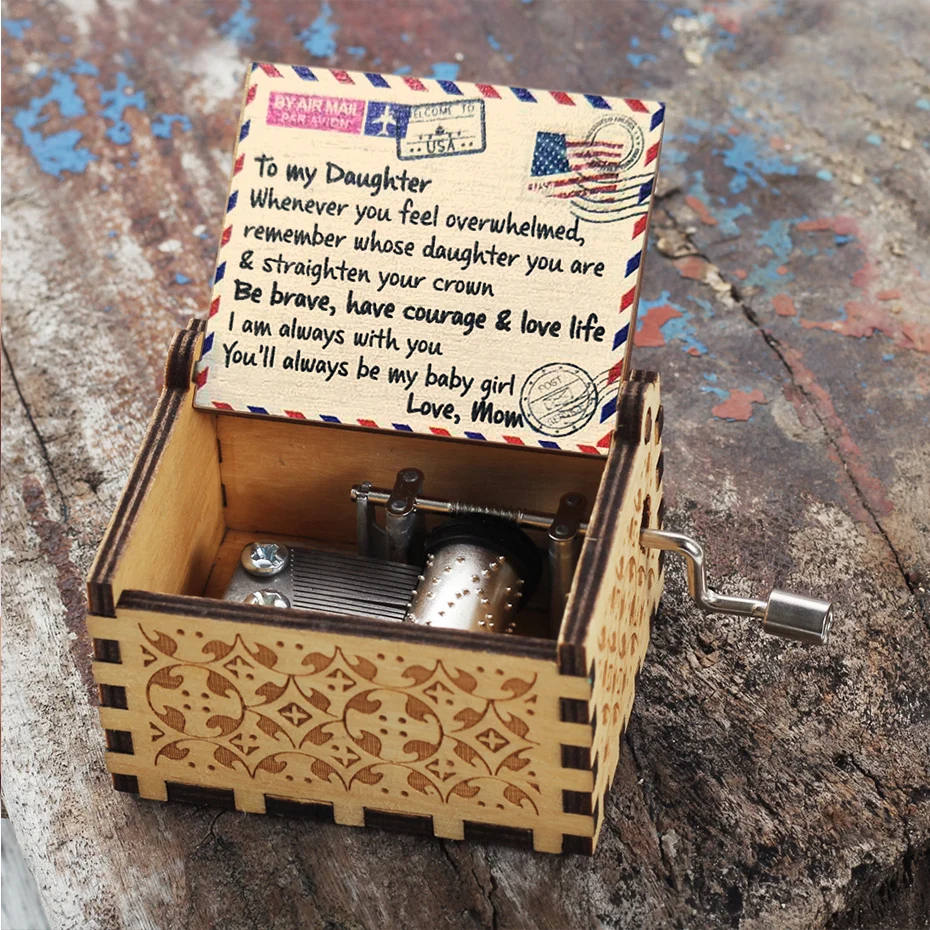 BY AIR MAIL
PAR AVION
WELCOME TO
USA
To my Daughter
Whenever you feel overwhelmed,
remember whose daughter you are
& straighten your crown
Be brave, have courage & love life
I am always with you
You'll always be my baby girl
Love, Mom